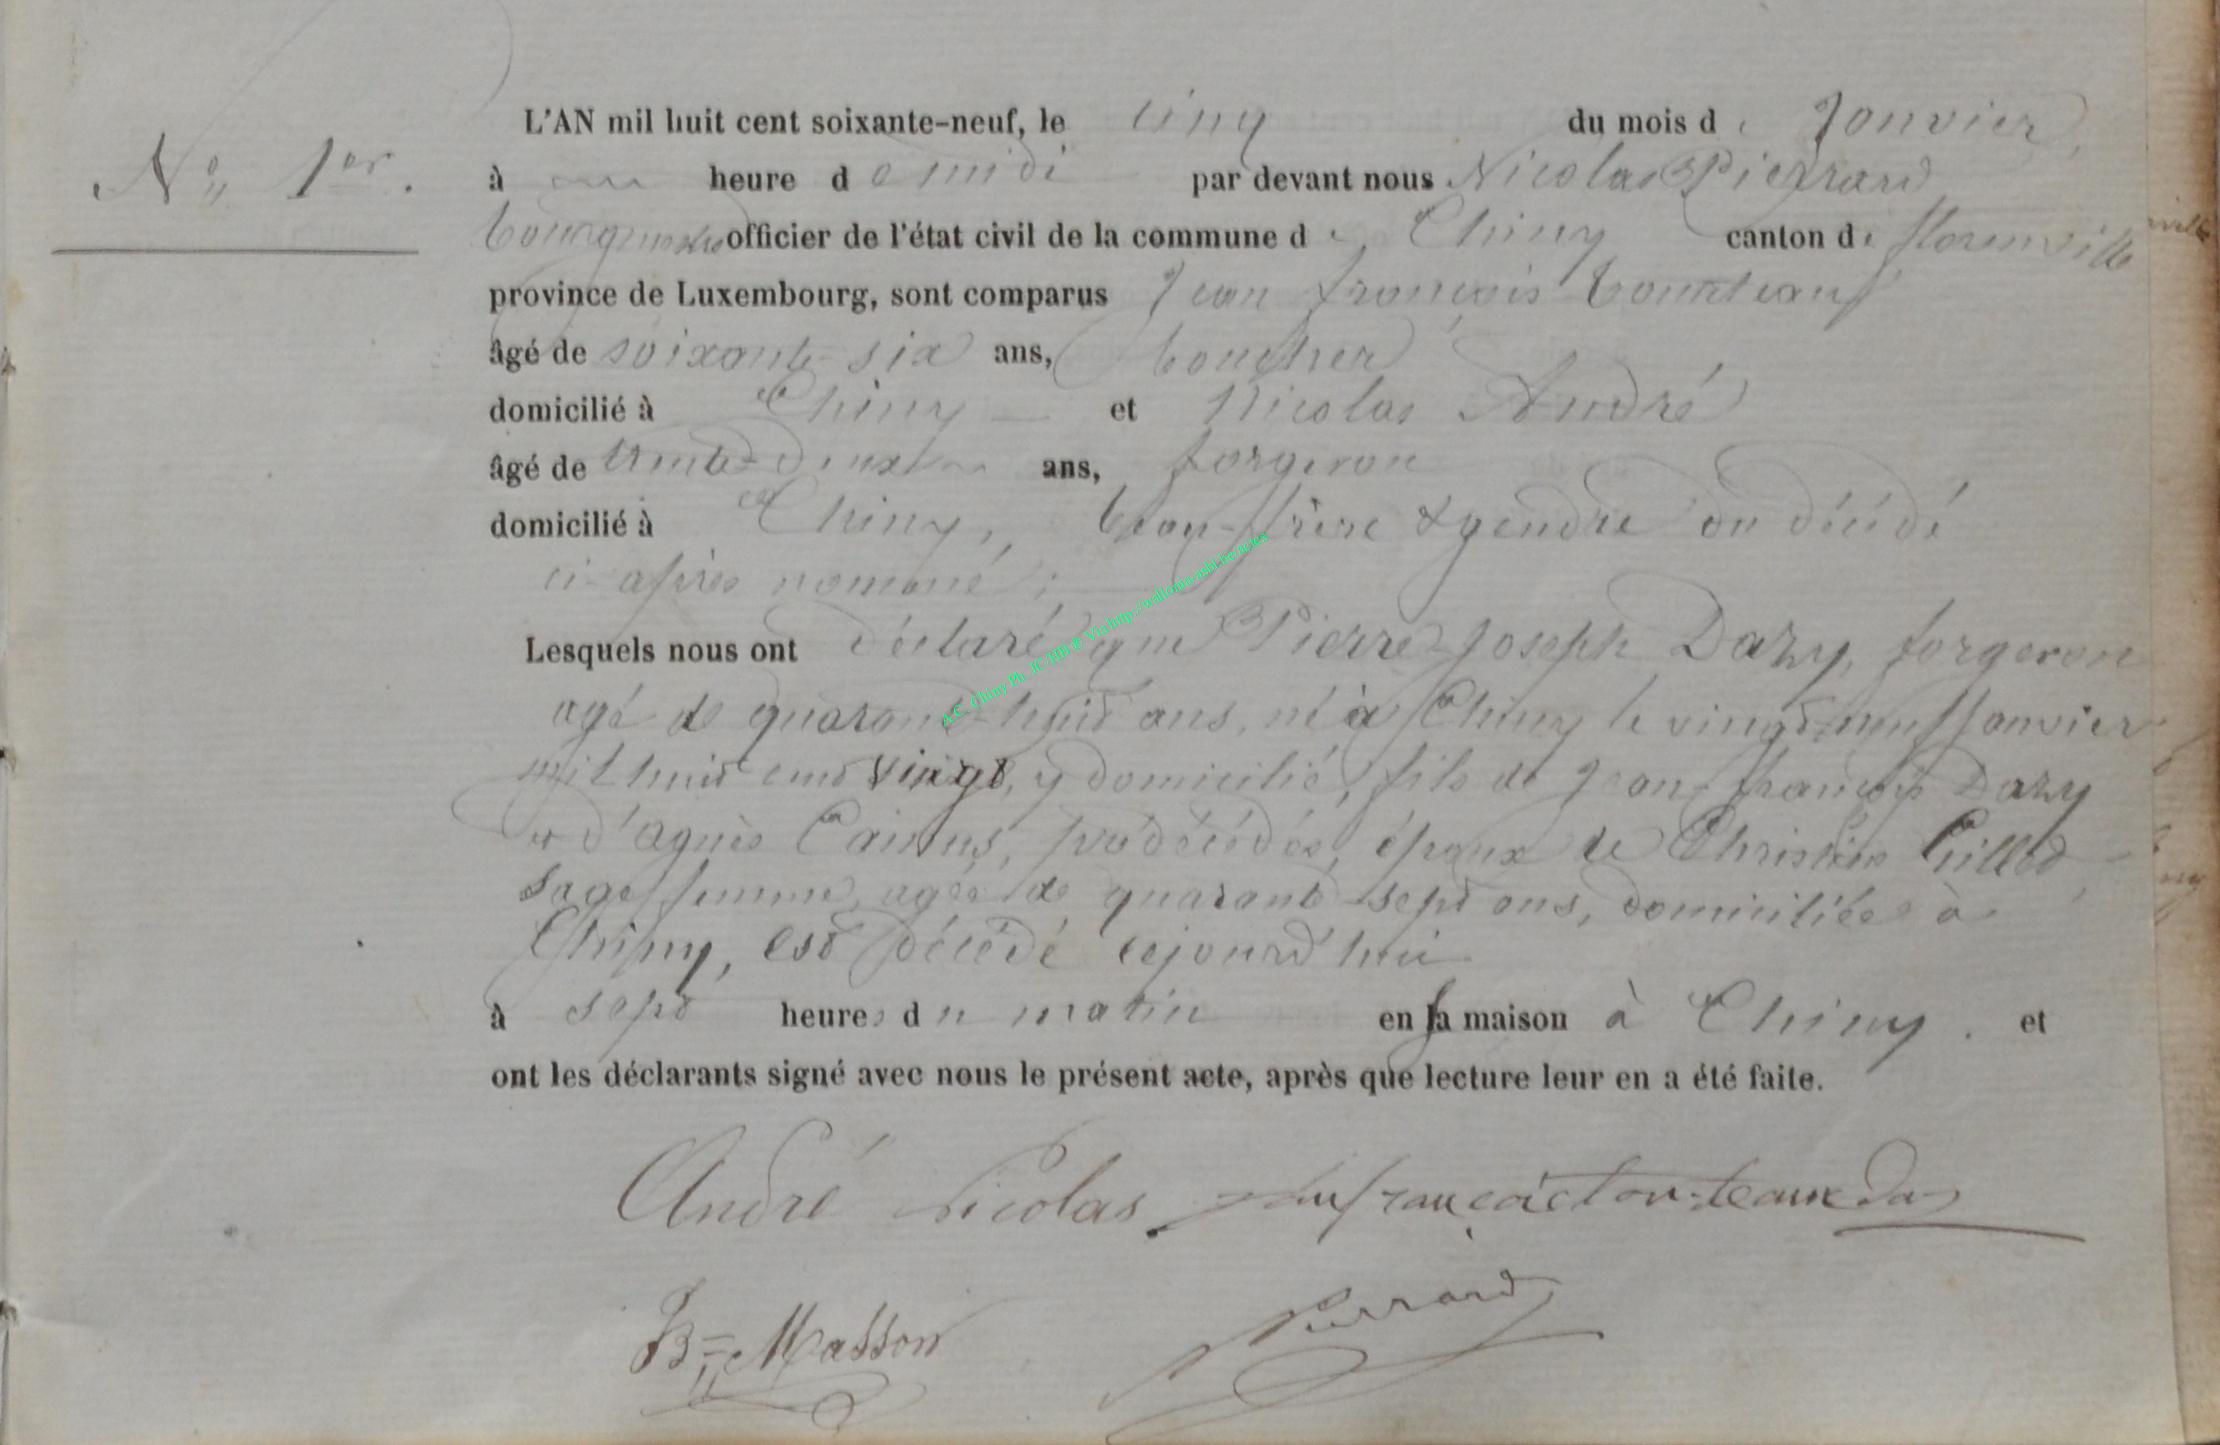 N° 1er.
L'AN mil huit cent soixante-neuf, le cinq du mois de Janvier,
à une heure de midi par devant nous Nicolas Pierrard
bourgmestre officier de l'état civil de la commune de Chiny canton de florenville
province de Luxembourg, sont comparus Jean françois
âgé de soixante-six ans, boucher
domicilié à Chiny et Nicolas André
âgé de trente-deux ans, forgeron
domicilié à Chiny, beau-frère & gendre du décédé
ci-après nommé ;
Lesquels nous ont déclaré que Pierre Joseph Dazy, forgeron
agé de quarante-huit ans, né à Chiny le vingt-neuf Janvier
mil huit cent vingt, y domicilié, fils de Jean françois Dazy
et d'agnès prédécédés, époux de Gillet
sage femme, agée de quarante-sept ans, domiciliée à
Chiny, est décédé cejourd'hui
à sept heures du matin en sa maison à Chiny. et
ont les déclarants signé avec nous le présent acte, après que lecture leur en a été faite.
André Nicolas
Masson Pierrard
A.C. Chiny Ph. JC HB P. Via http://wallonia-asbl.be/actes